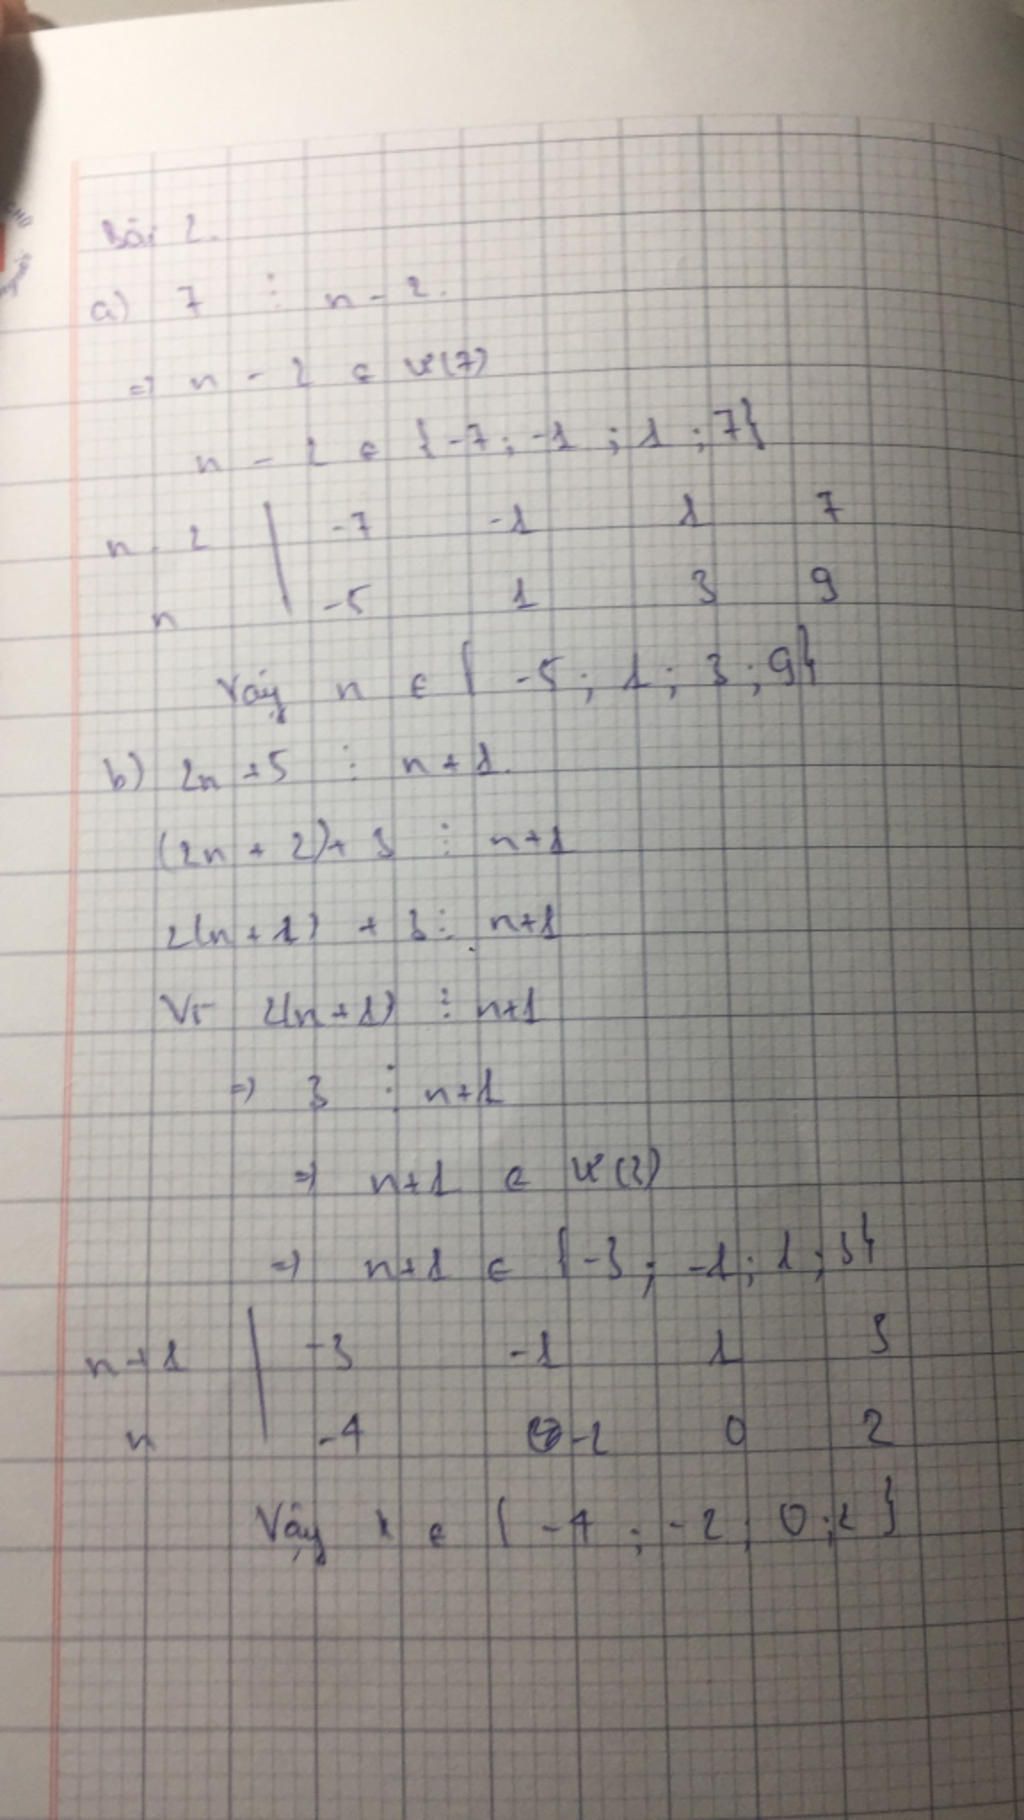 Bài 2.
a) 7 ⋮ n - 2.
=> n - 2 ∈ Ư(7)
n - 2 ∈ {-7 ; -1 ; 1 ; 7}
n - 2 | -7 -1 1 7
n | -5 1 3 9
Vậy n ∈ { -5 ; 1 ; 3 ; 9}
b) 2n + 5 ⋮ n + 1.
(2n + 2) + 3 ⋮ n+1
2(n + 1) + 3 ⋮ n+1
Vì 2(n+1) ⋮ n+1
=> 3 ⋮ n+1
=> n+1 ∈ Ư(3)
=> n+1 ∈ {-3 ; -1 ; 1 ; 3}
n+1 | -3 -1 1 3
n | -4 -2 0 2
Vậy ∈ { -4 ; -2 ; 0 ; 2 }